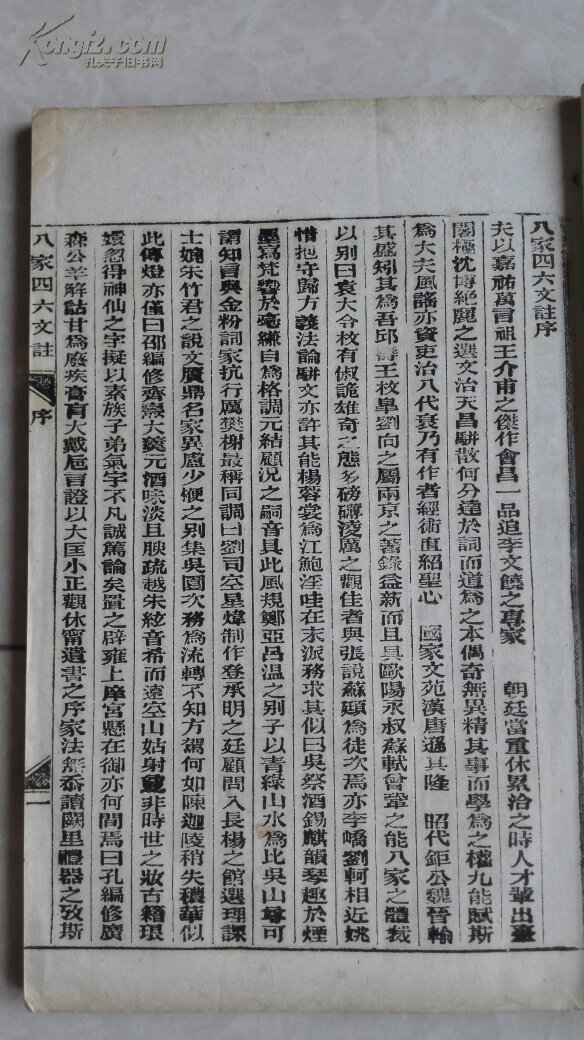 Kongfz.com
孔夫子旧书网
八家四六文註序
夫以嘉祐萬言祖王介甫之傑作會昌一品追李文饒之專家　朝廷當重休累洽之時人才輩出臺
閣極沈博絕麗之選文治天昌駢散何分達於詞而道爲之本偶奇無異精其事而學爲之權九能賦斯
爲大夫風謠亦資吏治八代衰乃有作者經術直紹聖心　國家文苑漢唐遜其隆　昭代鉅公魏晉輸
其盛矧其爲吾邱壽王枚臯劉向之屬兩京之著錄益新而且具歐陽永叔蘇軾曾鞏之能八家之體裁
以别曰袁大令枚有俶詭雄奇之態多磅礴凌厲之觀佳者與張說蘇頲爲徒次焉亦李嶠劉軻相近姚
惜抱守歸方義法論駢文亦許其能楊蓉裳爲江鮑淫哇在末派務求其似曰吳祭酒錫麒韻琴趣於煙
墨寫梵響於毫縑自爲格調元結顧況之嗣音具此風規鄭亞呂温之别子以青綠山水爲比吳山尊可
謂知言與金粉詞家抗行厲樊榭最稱同調曰劉司空星煒制作登承明之廷顧問入長楊之館選理課
士媲朱竹君之說文贋鼎名家異盧少楩之别集吳園次務爲流轉不知方駕何如陳迦陵稍失穠華似
此傳燈亦僅曰邵編修齊燾大羹元酒味淡且腴疏越朱絃音希而遠空山姑射藐非時世之妝古籍琅
嬛忽得神仙之字擬以素族子弟氣宇不凡誠篤論矣置之辟雍上庠宮懸在御亦何間焉曰孔編修廣
森公羊解詁甘爲廢疾膏肓大戴巵言證以大匡小正觀休甯遺書之序家法無忝讀闕里禮器之攷斯
八家四六文註
序
一